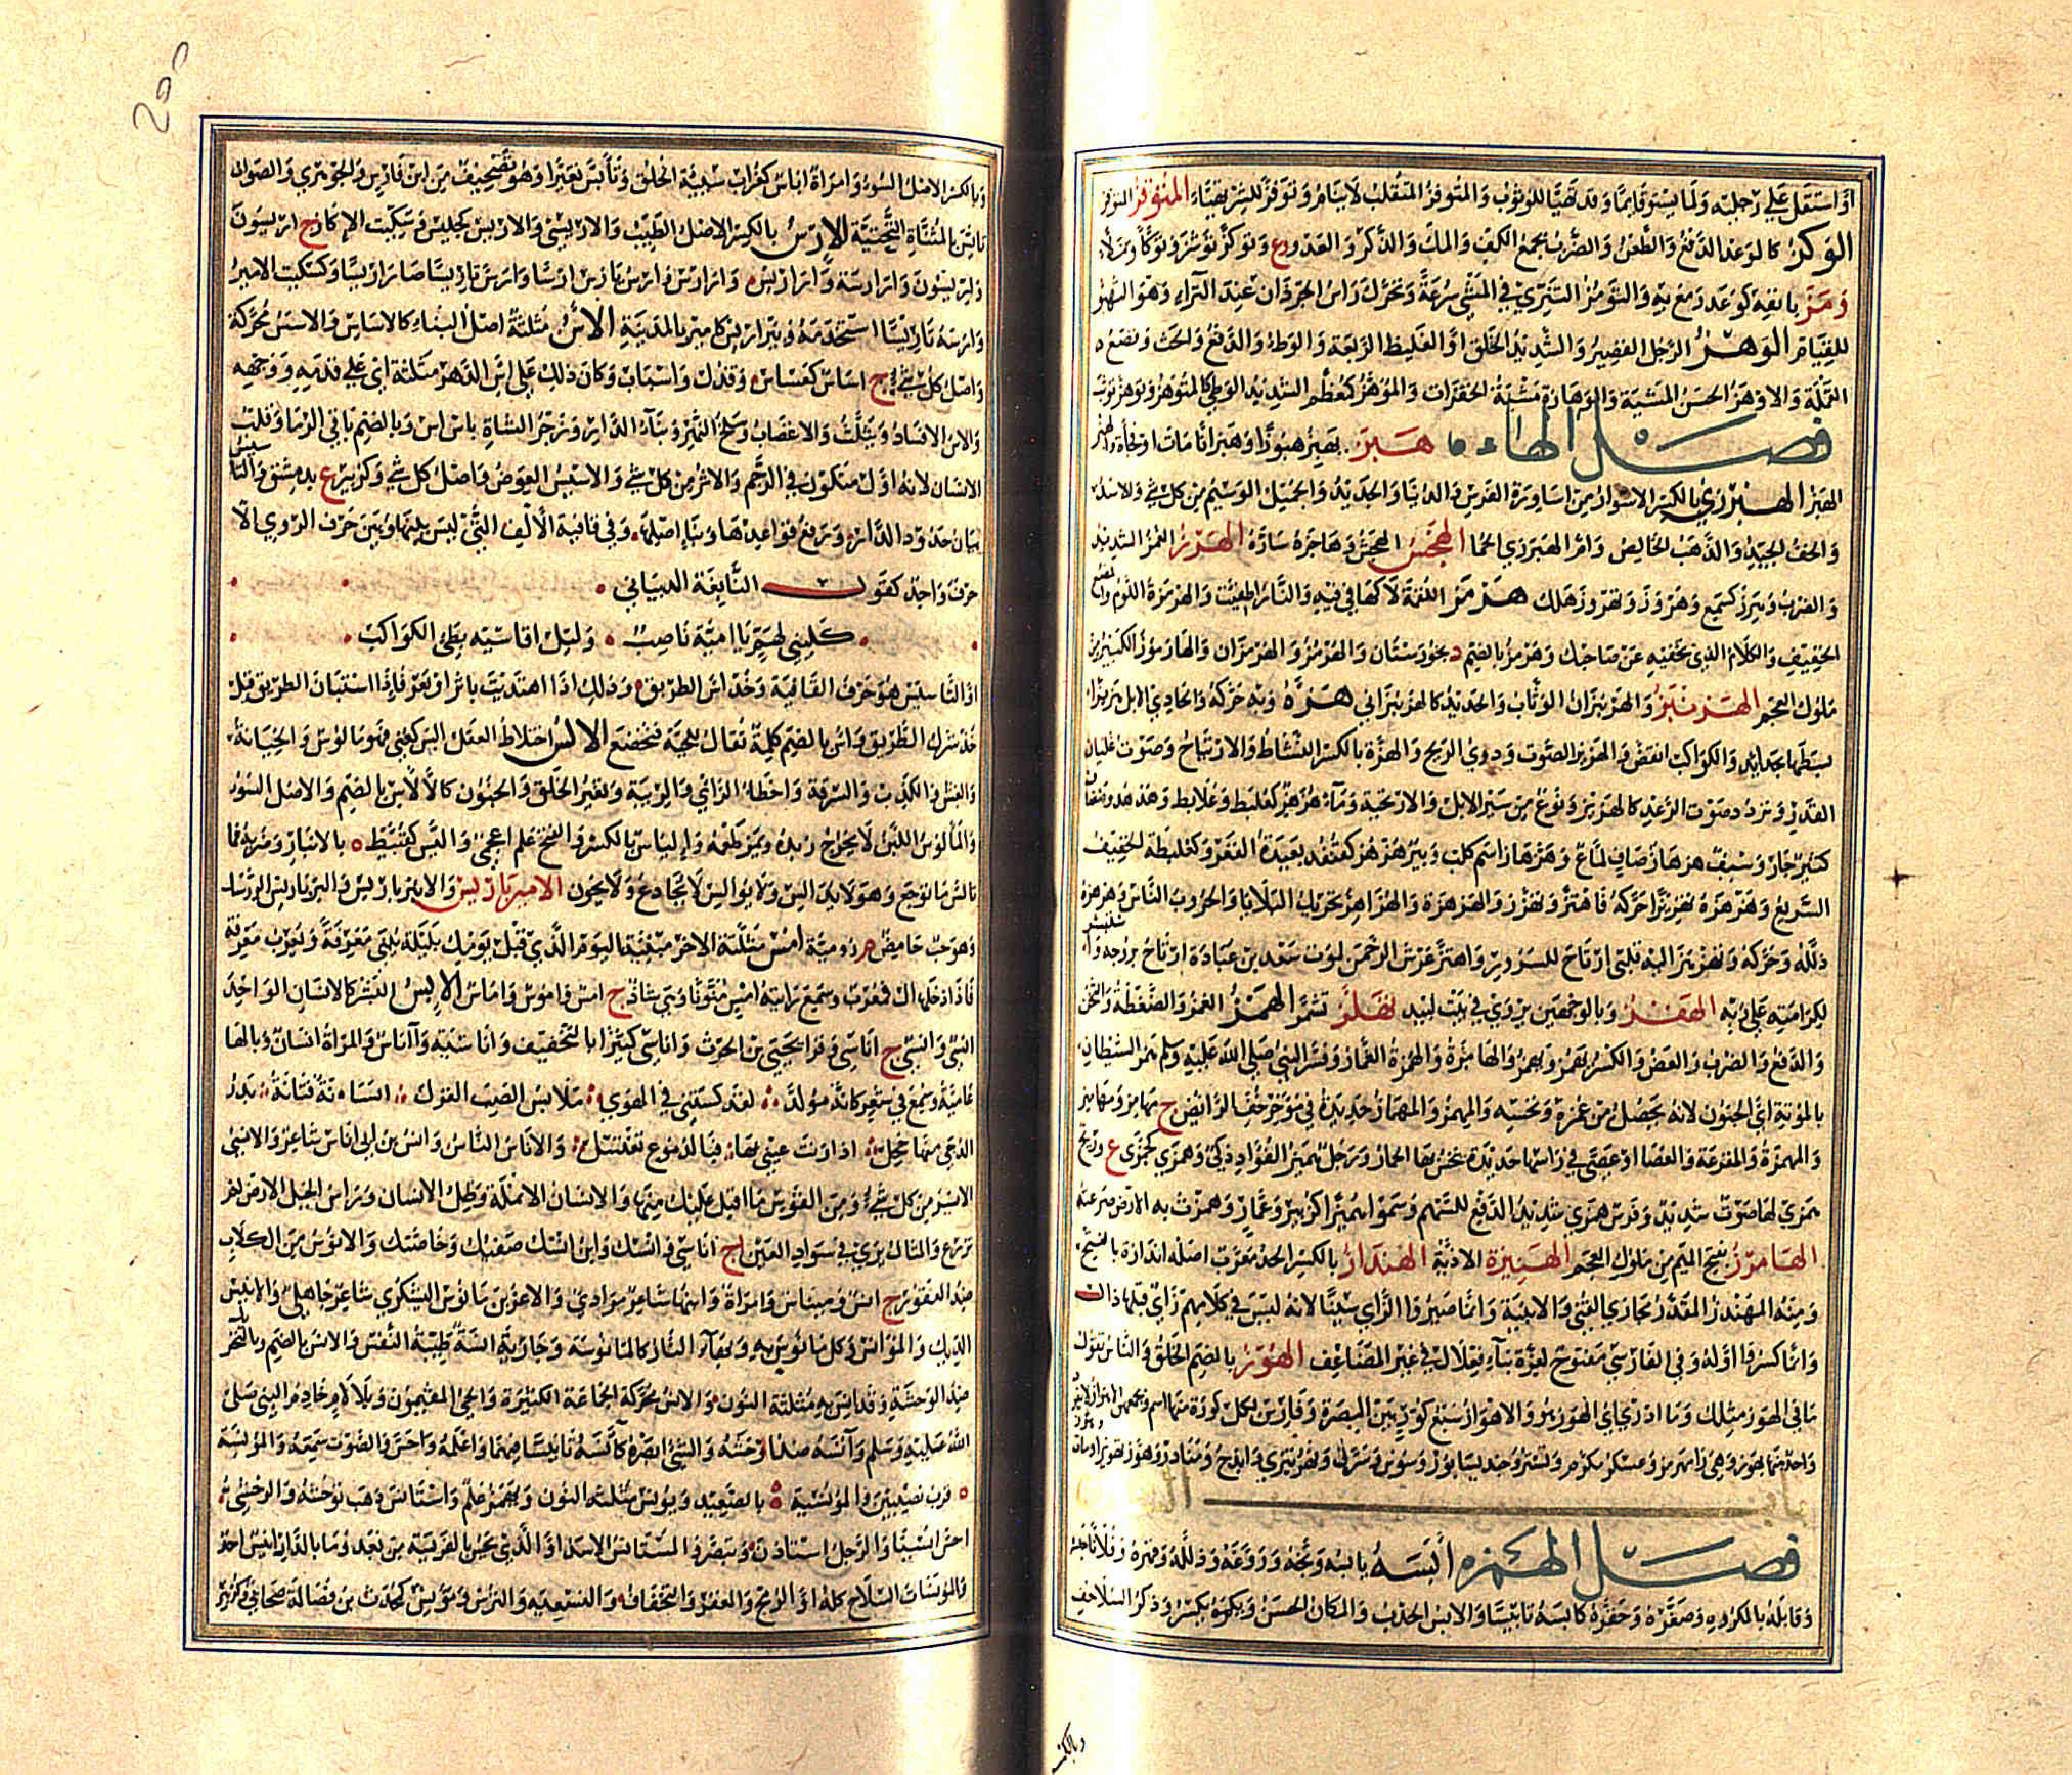 أو استقل على رجليه ولما يستو قائما وقد تهيأ للوثوب والمتوفز المتقلب لا ينام وتوفز للشر تهيأ
الوكز كالوعد الدفع والطعن والضرب بجمع الكف والملء والركز والعدو وتوكز توشز وتوكأ
ومز بانفه كوعد رمع به والتومز التنزي في المشي سرعة وتحرك رأس الجردان عند النزاء وهو التهيؤ
للقيام الوهز الرجل القصير والشديد الخلق أو الغليظ الربعة والوطء والدفع والحث وقصع
القملة والاوهز الحسن المشية والوهازة مشية الخفرات والموهز كمعظم الشديد الوطء كالمتوهز وتوهز توثب
فصل الهاء هبز يهبز هبوزا وهبزانا مات أو فجأة
الهبز الهبرزي بالكسر الاسوار من اساورة الفرس والدينار الجديد والجميل الوسيم من كل شيء والاسد
والخف الجيد والذهب الخالص وام الهبرزي الحما الهجز الهجس وهاجزه ساره الهرز الغمز الشديد
والضرب وهرز كسمع وهروز وتهروز هلك هرمز اللقمة لاكها في فيه والنار طفئت والهرمزة اللؤم
الخفيف والكلام الذي تخفيه عن صاحبك وهرمز بالضم د بخوزستان والهرمز والهرمزان والهارموز الكبير من
ملوك العجم الهزنبز والهزنبزان الوثاب والحديد كالهزنبزاني هزه وبه حركه والحادي الابل هزيزا
نشطها بحدائه والكواكب انقض والهزيز الصوت ودوي الريح والهزة بالكسر النشاط والارتياح وصوت غليان
القدر وتردد صوت الرعد كالهزيز ونوع من سير الابل والاريحية وماء هزهز كعلبط وعلابط وهدهد
كثير جار وسيف هزهاز صاف لماع وهزهاز اسم كلب وبئر هزهز كقنفذ بعيدة القعر وكعلبطة الخفيف
السريع وهزهزه تهزيزا حركه فاهتز وتهزز والهزهزة والهزاهز تحريك البلايا والحروب الناس وهزهزه
ذلله وحركه وتهزهز اليه قلبي ارتاح للسرور واهتز عرش الرحمن لموت سعد بن عبادة ارتاح بروحه
لكرامته على ربه الهقز وبالوجهين يروى في بيت لبيد تهلز تشمر الهمز الغمز والضغطة والنخس
والدفع والضرب والعض والكسر يهمز ويهمز والهامزة والهمزة الغماز وفسر النبي صلى الله عليه وسلم همز الشيطان
بالموتة اي الجنون لانه يحصل من غمزه ونخسه والمهمز والمهماز حديدة في مؤخر خف الرائض ج مهامز ومهاميز
والمهمزة والمقرعة والعصا او عصى في رأسها حديدة ينخس بها الحمار ورجل هميز الفؤاد ذكي وهمزى كجمزى ع وريح
همزى لها صوت شديد وقوس همزى شديدة الدفع للسهم وسموا هميزا كزبير وعمار وهمزت به الارض صرعته
الهامرز بفتح الميم من ملوك العجم الهنيزة الاذية الهنداز بالكسر الحد معرب اصله اندازه بالفتح
ومنه المهندز المقدر مجاري القني والابنية وانما صيروا الزاي سينا لانه ليس في كلامهم زاي قبلها دال
وانما كسروا اوله وفي الفارسي مفتوح لعزة بناء فعلال في غير المضاعف الهوز بالضم الخلق والناس تقول
ما في الهوز مثلك وما ادري اي الهوز هو والاهواز سبع كور بين البصرة وفارس لكل كورة منها اسم ويجمعهن الاهواز
واحدتها بهوز وهي رامهرمز وعسكر مكرم وتستر وجنديسابور وسوس وسرق ونهر تيرى وايذج ومناذر وهوز تهويزا مات
باب ال
فصل الهمزه أبسه يابسه وبخه وروعه وذلله وقهره وفلانا حبسه
وقابله بالمكروه وصغره وحقره كابسه تابيسا والابس الجدب والمكان الخشن ويكسر وذكر السلاحف
وبالكسر
وبالكسر الاصل السوء وامراة اباس كغراب سيئة الخلق وتأبس تغير او هو تصحيف من ابن فارس والجوهري والصواب
تايس بالمثناة التحتية الارس بالكسر الاصل الطيب والاريسي والاريس كجليس وسكيت الاكار ج اريسون
واريسون وارارسة واراريس وارارس وارس يارس ارسا وارس تاريسا صار اريسا وكسكيت الامير
وارسه تاريسا استخدمه وبئر اريس كامير بالمدينة الأس مثلثة اصل البناء كالاساس والاسس محركة
واصل كل شيء ج اساس كعساس وقذل واسباب وكان ذلك على اس الدهر مثلثة اي على قدمه ووجهه
والاس الافساد ويثلث والاغضاب وسلح النحل وبناء الدار وزجر الشاة باس اس وبالضم باقي الرماد وقلب
الانسان لانه اول متكون في الرحم والاثر من كل شيء والاسيس العوض واصل كل شيء وكزبير ع بدمشق والتاسيس
بيان حدود الدار ورفع قواعدها وبناء اصلها وفي قافية الالف التي ليس بينها وبين حرف الروي الا
حرف واحد كقول النابغة الذبياني
كليني لهم يا اميمة ناصب وليل اقاسيه بطئ الكواكب
او التاسيس هو حرف القافية وخذ اس الطريق وذلك اذا اهتديت باثر او بعر فاذا استبان الطريق قيل
خذ شرك الطريق واس بالضم كلمة تقال للحية فتخضع الالس اختلاط العقل الس كعني فهو مالوس والخيانة
والغش والكذب والسرقة واخطاء الراي والريبة وتغير الخلق والجنون كالالاس بالضم والاصل السوء
والمالوس اللبن لا يخرج زبده ويمر طعمه والياس بالكسر والفتح علم اعجمي واليس كقبيط ه بالانبار وضربه فما
تالس ما توجع وهو لا يدالس ولا يوالس لا يخادع ولا يخون الامبرباريس والانبرباريس والبرباريس الزرشك
وهو حب حامض م رومية امس مثلثة الاخر مبنية اليوم الذي قبل يومك بليلة يبنى معرفة ويعرب معرفة
فاذا دخلها ال فمعرب وسمع رايته امس منونا وهي شاذة ج امس واموس واماس الانس البشر كالانسان الواحد
انسي وانسي ج اناسي وقرا يحيى بن الحرث واناسي كثيرا بالتخفيف واناسية وآناس والمراة انسان وبالهاء
عامية وسمع في شعر كانه مولد لقد كستني في الهوى ملابس الصب الغزل انسانة فتانة بدر
الدجى منها خجل اذا زنت عيني بها فبالدموع تغتسل والاناس الناس وانس بن ابي اناس شاعر والانسي
الايسر من كل شيء ومن القوس ما اقبل عليك منها والانسان الانملة وظل الانسان وراس الجبل الارض لم
تزرع والمثال يرى في سواد العين ج اناسي وانسك وابن انسك صفيك وخاصتك والانوس من الكلاب
ضد العقور ج انس ومئناس وامراة وابنها شاعر مرادي والاغر بن مانوس اليشكري شاعر جاهلي والانيس
الديك والمؤانس وكل ما نوس به وبهاء النار كالمانوسة وجارية انسة طيبة النفس والانس بالضم وبالتحريك
ضد الوحشة وقد انس به مثلثة النون والانس محركة الجماعة الكثيرة والحي المقيمون وبلا لام خادم النبي صلى
الله عليه وسلم وآنسه ضد اوحشه والشيء ابصره كأنسه تانيسا فيهما وعلمه واحس والصوت سمعه والمونسة
ه قرب نصيبين والمونسية ه بالصعيد ويونس مثلثة النون ويهمز علم واستانس ذهب توحشه والوحشي
احس انسيا والرجل استاذن وتبصر والمستانس الاسد او الذي يحس بالفريسة من بعد وما بالدار انيس احد
والمونسات السلاح كله او الرمح والمغفر والتجفاف والتسبغة والترس ومونس كمحدث بن فضالة صحابي وكزبير